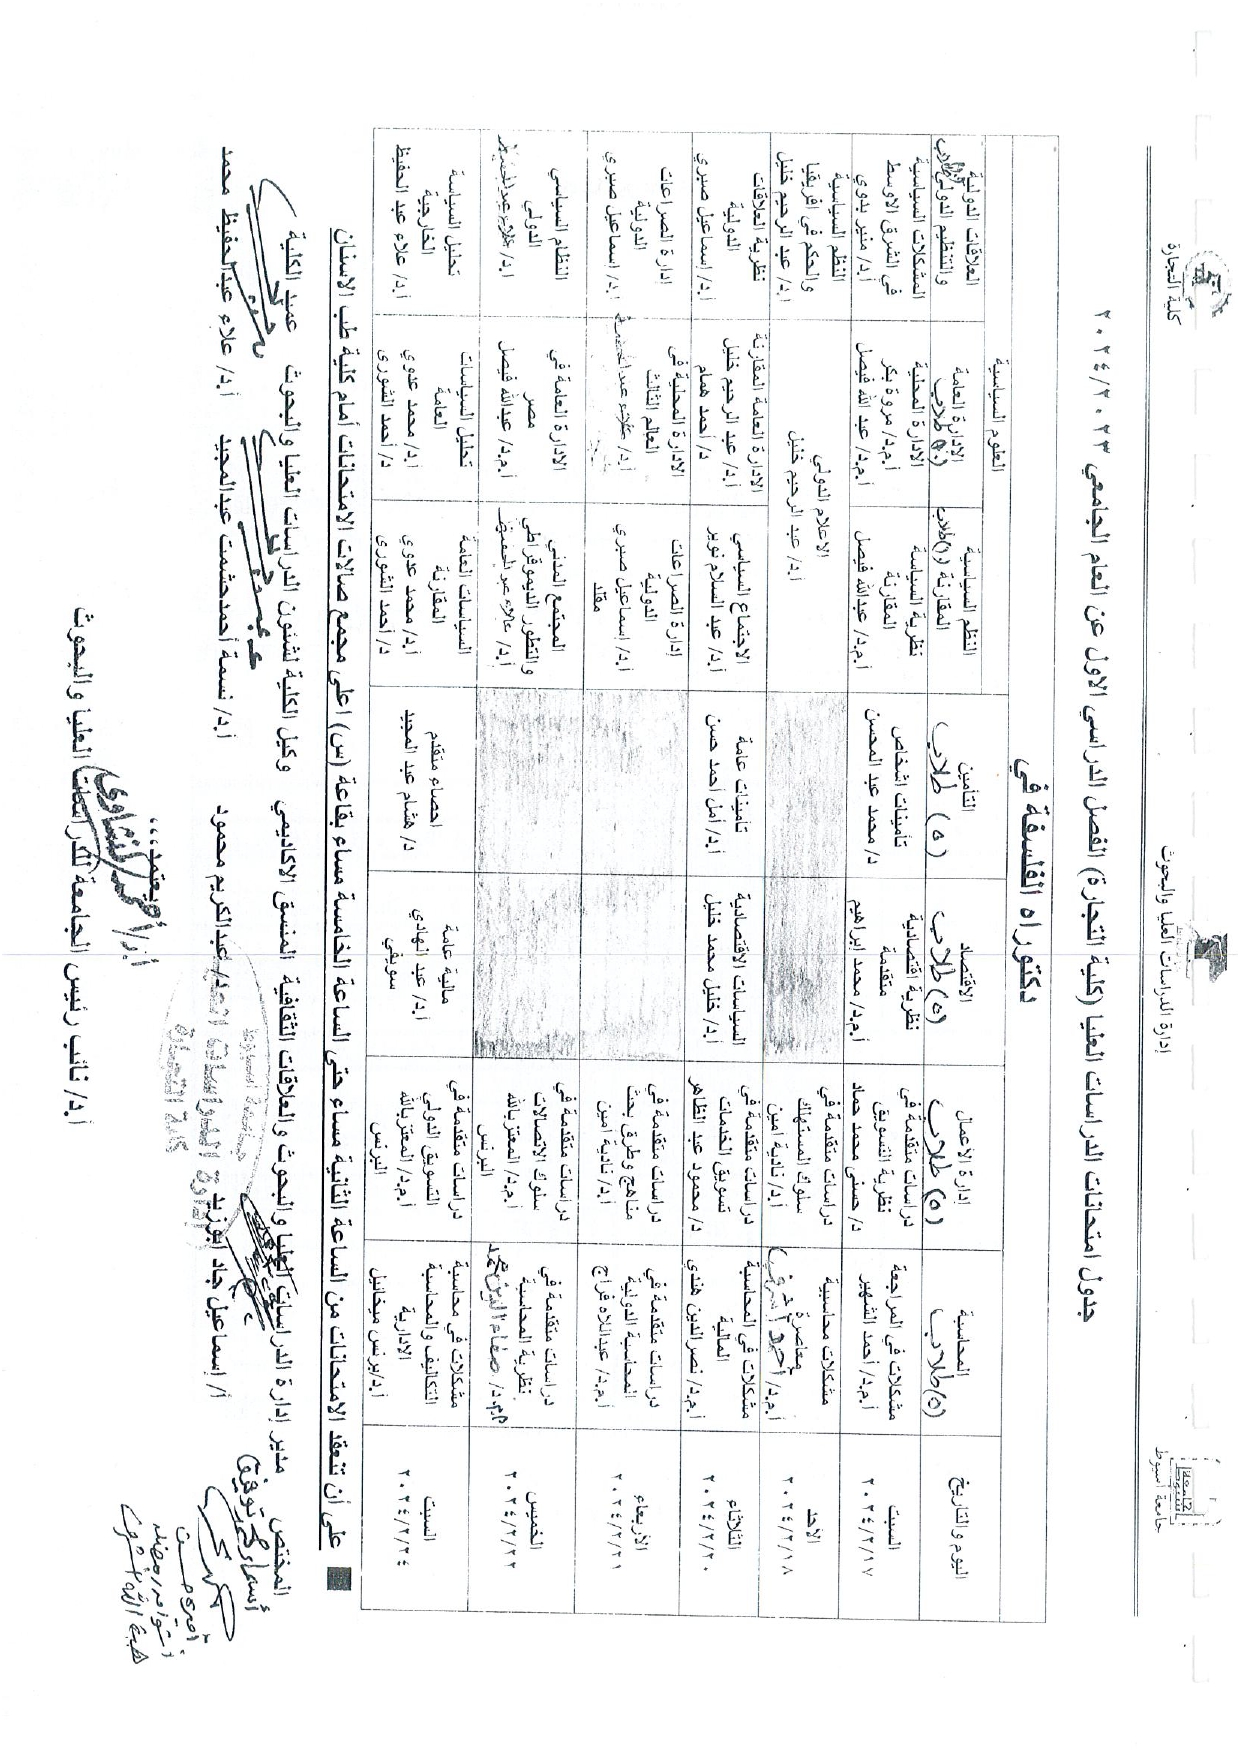 جامعة أسيوط
إدارة الدراسات العليا والبحوث
كلية التجارة
جدول امتحانات الدراسات العليا (كلية التجارة) الفصل الدراسي الاول عن العام الجامعي ٢٠٢٤/٢٠٢٣
دكتوراه الفلسفة في
اليوم والتاريخ
المحاسبة
(٥) طلاب
إدارة الأعمال
(٥) طلاب
الاقتصاد
(٥) طلاب
التأمين
(٥) طلاب
العلوم السياسية
النظم السياسية
المقارنة (١) طلاب
الإدارة العامة
طلاب
العلاقات الدولية
والتنظيم الدولي
السبت
٢٠٢٤/٢/١٧
مشكلات في المراجعة
أ.م.د/ أحمد الشهير
دراسات متقدمة في
نظرية التسويق
د/ حسنى محمد حماد
نظرية اقتصادية
متقدمة
أ.م.د/ محمد ابراهيم
تأمينات اشخاص
د/ محمد عبد المحسن
نظرية السياسة
المقارنة
أ.م.د/ عبدالله فيصل
الادارة المحلية
أ.م.د/ مروة بكر
أ.م.د/ عبد الله فيصل
المشكلات السياسية
في الشرق الاوسط
أ.د/ منير بدوي
الاحد
٢٠٢٤/٢/١٨
مشكلات محاسبية
معاصرة
دراسات متقدمة في
سلوك المستهلك
أ.د/ نادية امين
الاعلام الدولي
أ.د/ عبد الرحيم خليل
النظم السياسية
والحكم في افريقيا
أ.د/ عبد الرحيم خليل
الثلاثاء
٢٠٢٤/٢/٢٠
مشكلات في المحاسبة
المالية
أ.م.د/ نصرالدين هندي
دراسات متقدمة في
تسويق الخدمات
د/ محمود عبد الظاهر
السياسات الاقتصادية
أ.د/ خليل محمد خليل
تأمينات عامة
أ.د/ أمل أحمد حسن
الاجتماع السياسي
أ.د/ عبد السلام نوير
الادارة العامة المقارنة
أ.د/ عبد الرحيم خليل
د/ أحمد همام
نظرية العلاقات
الدولية
أ.د/ إسماعيل صبري
الاربعاء
٢٠٢٤/٢/٢١
دراسات متقدمة في
المحاسبة الدولية
أ.م.د/ عبداللاه فراج
دراسات متقدمة في
مناهج وطرق بحث
أ.د/ نادية امين
إدارة الصراعات
الدولية
أ.د/ إسماعيل صبري
مقلد
الادارة المحلية في
العالم الثالث
إدارة الصراعات
الدولية
أ.د/ إسماعيل صبري
الخميس
٢٠٢٤/٢/٢٢
دراسات متقدمة في
نظرية المحاسبة
دراسات متقدمة في
سلوك الاتصالات
أ.م.د/ المعتز بالله
البرنس
المجتمع المدني
والتطور الديموقراطي
أ.د/ علاء عبد الحفيظ
الادارة العامة في
مصر
أ.م.د/ عبدالله فيصل
النظام السياسي
الدولي
أ.د/ علاء عبد الحفيظ
السبت
٢٠٢٤/٢/٢٤
مشكلات في محاسبة
التكاليف والمحاسبة
الادارية
أ.د/ برنس ميخائيل
دراسات متقدمة في
التسويق الدولي
أ.م.د/ المعتز بالله
البرنس
مالية عامة
أ.د/ عبد الهادي
سويفي
احصاء متقدم
د/ هشام عبد المجيد
السياسات العامة
المقارنة
أ.د/ محمد عدوي
د/ أحمد الشورى
تحليل السياسات
العامة
أ.د/ محمد عدوي
د/ أحمد الشورى
تحليل السياسة
الخارجية
أ.د/ علاء عبد الحفيظ
■ على أن تنعقد الامتحانات من الساعة الثانية مساء حتى الساعة الخامسة مساء بقاعة (س) اعلى مجمع صالات الامتحانات أمام كلية طب الاسنان
المختص مدير إدارة الدراسات العليا والبحوث والعلاقات الثقافية المنسق الاكاديمي وكيل الكلية لشئون الدراسات العليا والبحوث عميد الكلية
أ/ إسماعيل جاد ابوزيد د/ عبدالكريم محمود أ.د/ نسمة أحمد حشمت عبدالمجيد أ.د/ علاء عبدالحفيظ محمد
يعتمد،،،
أ.د/ نائب رئيس الجامعة للدراسات العليا والبحوث